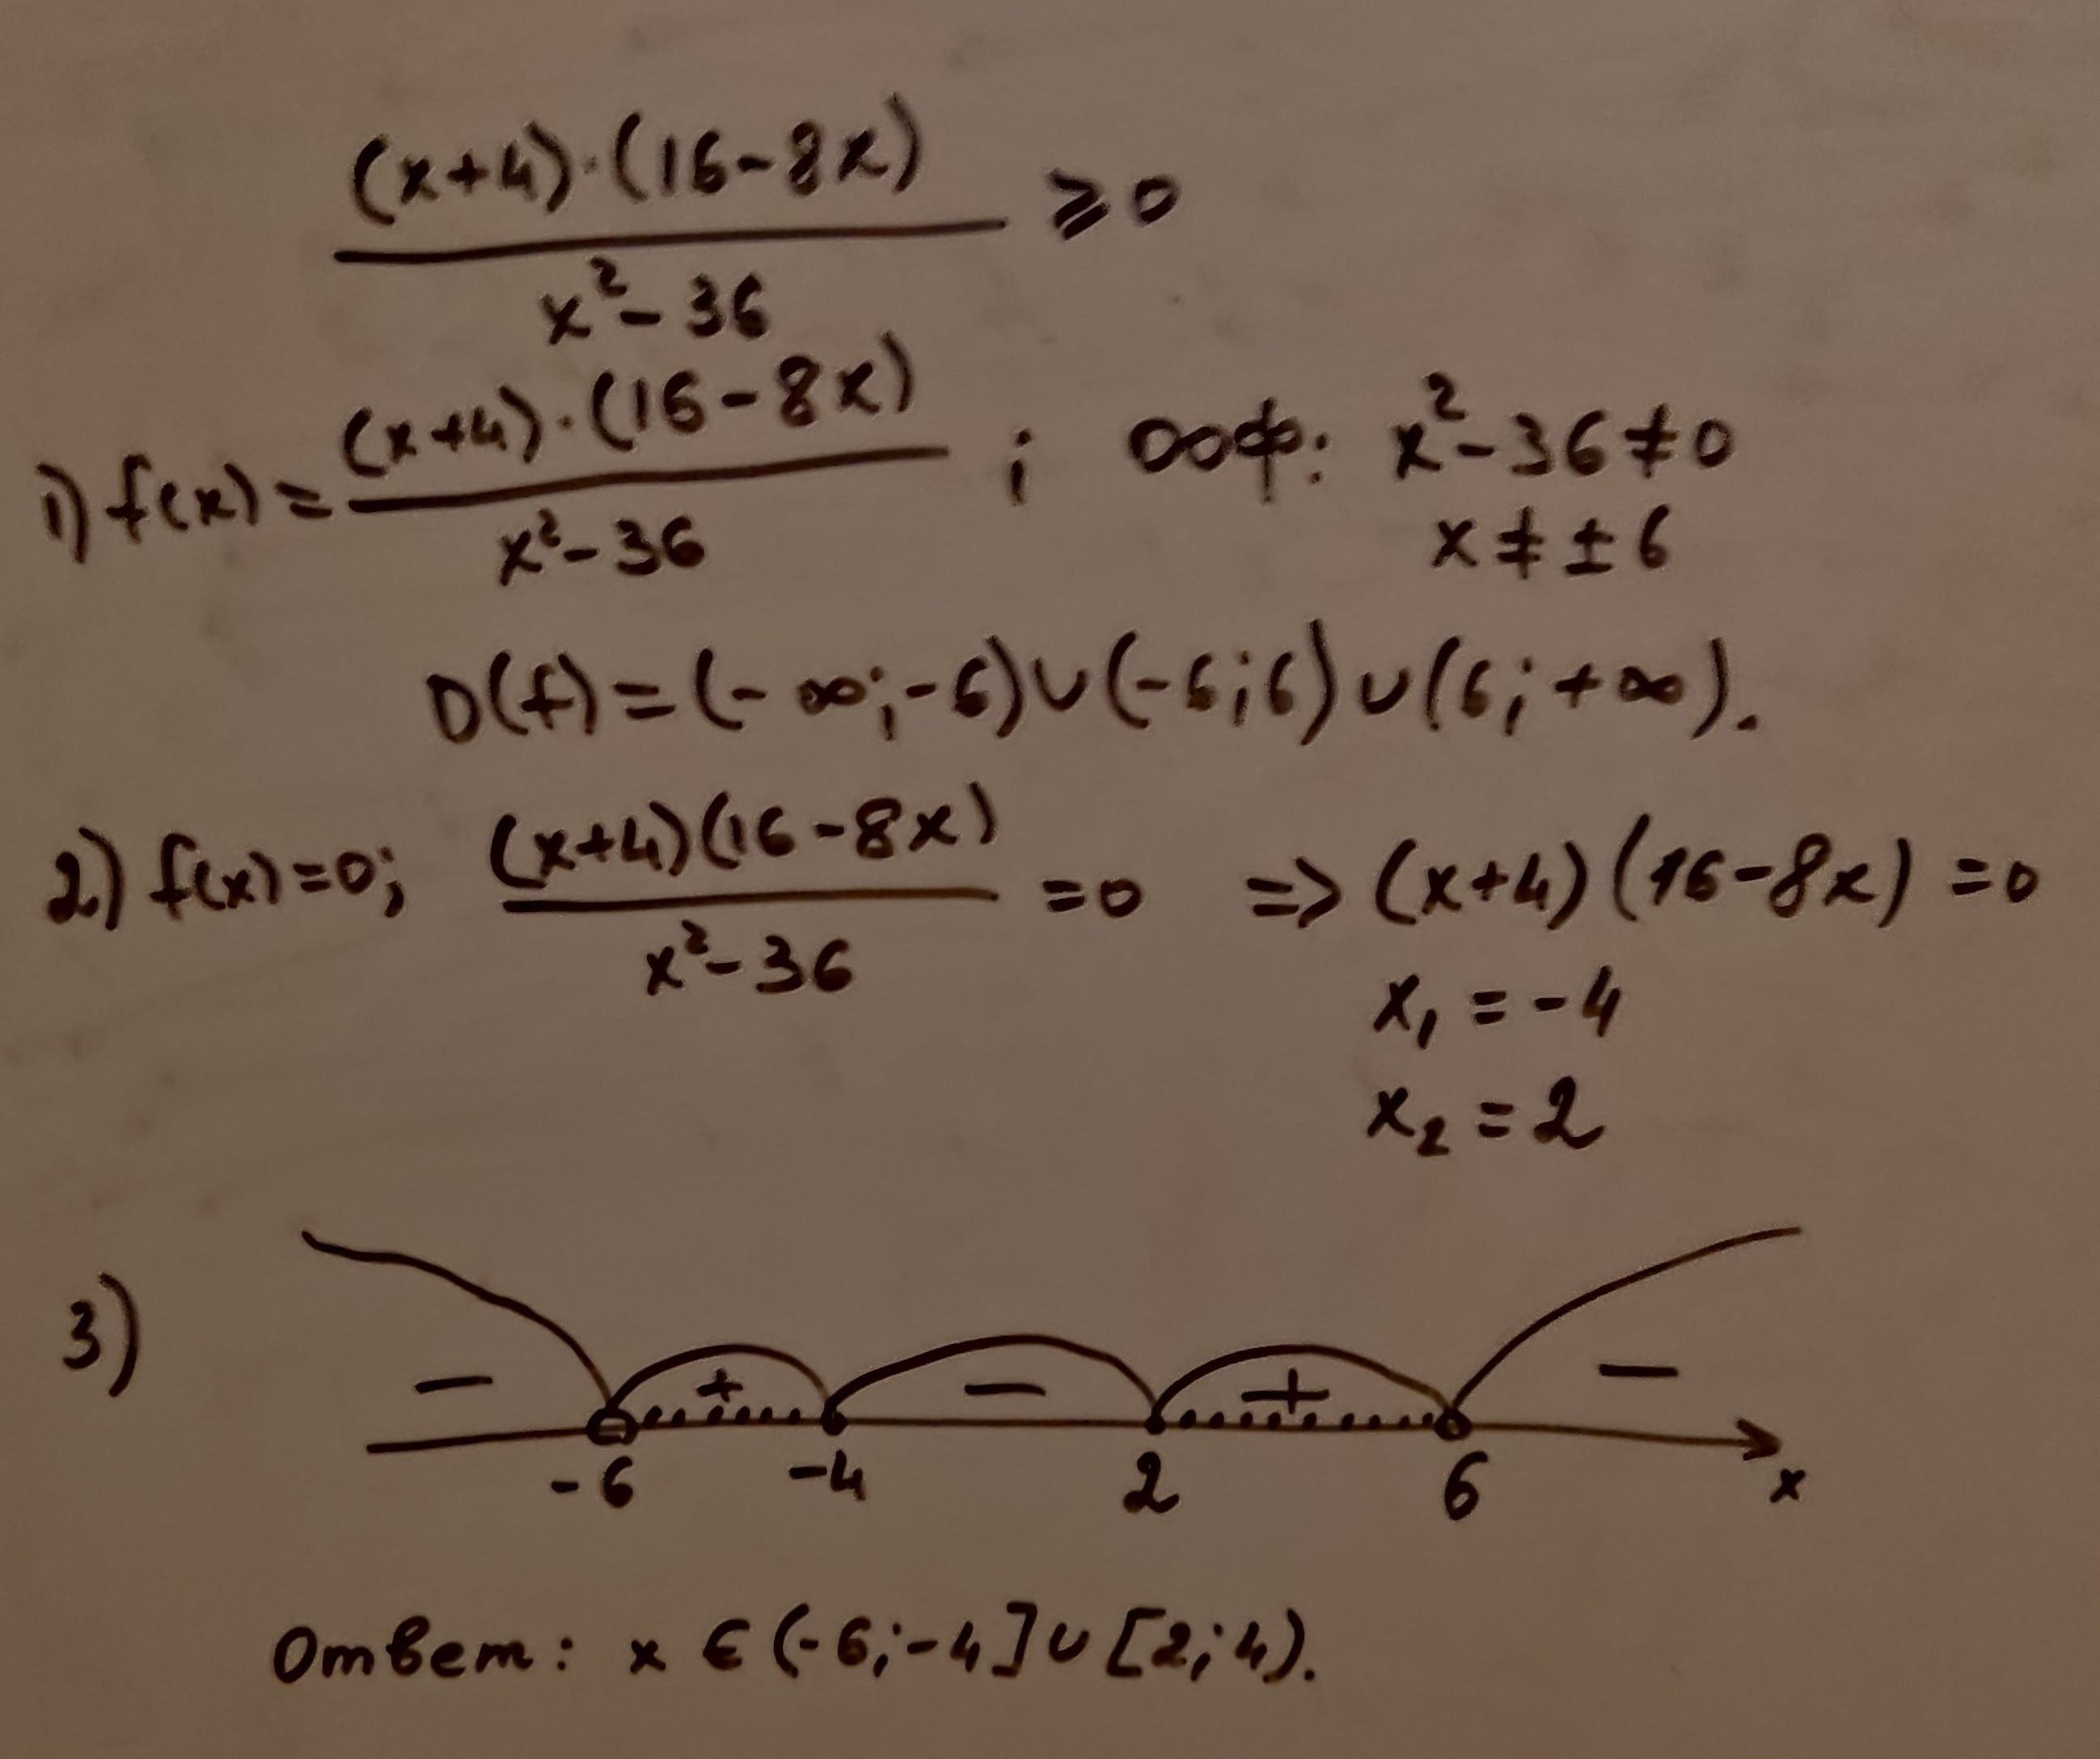 (x+4)·(16-8x) / x²-36 ⩾ 0
1) f(x) = (x+4)·(16-8x) / x²-36 ; ооф: x²-36≠0
x ≠ ±6
D(f) = (-∞;-6)∪(-6;6)∪(6;+∞).
2) f(x)=0; (x+4)(16-8x) / x²-36 =0 => (x+4)(16-8x)=0
x₁ = -4
x₂ = 2
3)
− + − + −
-6 -4 2 6 x
Ответ: x ∈ (-6;-4]∪[2;4).